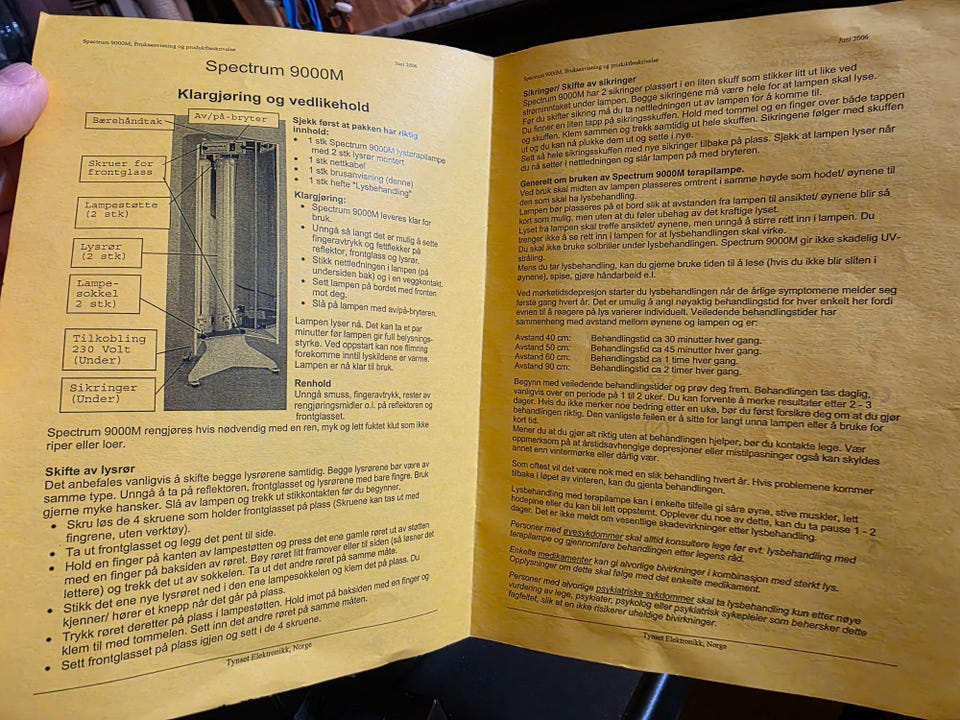 Spectrum 9000M, Bruksanvisning og produktbeskrivelse
Juni 2006
Spectrum 9000M
Klargjøring og vedlikehold
Bærehåndtak
Av/på-bryter
Skruer for
frontglass
Lampestøtte
(2 stk)
Lysrør
(2 stk)
Lampe-
sokkel
2 stk)
Tilkobling
230 Volt
(Under)
Sikringer
(Under)
Sjekk først at pakken har riktig
innhold:
• 1 stk Spectrum 9000M lysterapilampe
med 2 stk lysrør montert
• 1 stk nettkabel
• 1 stk brusanvisning (denne)
• 1 stk hefte "Lysbehandling"
Klargjøring:
• Spectrum 9000M leveres klar for
bruk.
• Unngå så langt det er mulig å sette
fingeravtrykk og fettflekker på
reflektor, frontglass og lysrør.
• Stikk nettledningen i lampen (på
undersiden bak) og i en veggkontakt.
• Sett lampen på bordet med fronten
mot deg.
• Slå på lampen med av/på-bryteren.
Lampen lyser nå. Det kan ta et par
minutter før lampen gir full belysnings-
styrke. Ved oppstart kan noe flimring
forekomme inntil lyskildene er varme.
Lampen er nå klar til bruk.
Renhold
Unngå smuss, fingeravtrykk, rester av
rengjøringsmidler o.l. på reflektoren og
frontglasset.
Spectrum 9000M rengjøres hvis nødvendig med en ren, myk og lett fuktet klut som ikke
riper eller loer.
Skifte av lysrør
Det anbefales vanligvis å skifte begge lysrørene samtidig. Begge lysrørene bør være av
samme type. Unngå å ta på reflektoren, frontglasset og lysrørene med bare fingre. Bruk
gjerne myke hansker. Slå av lampen og trekk ut stikkontakten før du begynner.
• Skru løs de 4 skruene som holder frontglasset på plass (Skruene kan tas ut med
fingrene, uten verktøy).
• Ta ut frontglasset og legg det pent til side.
• Hold en finger på kanten av lampestøtten og press det ene gamle røret ut av støtten
med en finger på baksiden av røret. Bøy røret litt framover eller til siden (så løsner det
lettere) og trekk det ut av sokkelen. Ta ut det andre røret på samme måte.
• Stikk det ene nye lysrøret ned i den ene lampesokkelen og klem det på plass. Du
kjenner/ hører et knepp når det går på plass.
• Trykk røret deretter på plass i lampestøtten. Hold imot på baksiden med en finger og
klem til med tommelen. Sett inn det andre røret på samme måten.
• Sett frontglasset på plass igjen og sett i de 4 skruene.
Tynset Elektronikk, Norge
Spectrum 9000M, Bruksanvisning og produktbeskrivelse
Juni 2006
Sikringer/ Skifte av sikringer
Spectrum 9000M har 2 sikringer plassert i en liten skuff som stikker litt ut like ved
strøminntaket under lampen. Begge sikringene må være hele for at lampen skal lyse.
Før du skifter sikring må du ta nettledningen ut av lampen for å komme til.
Du finner en liten tapp på sikringsskuffen. Hold med tommel og en finger over både tappen
og skuffen. Klem sammen og trekk samtidig ut hele skuffen. Sikringene følger med skuffen
ut og du kan nå plukke dem ut og sette i nye.
Sett så hele sikringsskuffen med nye sikringer tilbake på plass. Sjekk at lampen lyser når
du nå setter i nettledningen og slår lampen på med bryteren.
Generelt om bruken av Spectrum 9000M terapilampe.
Ved bruk skal midten av lampen plasseres omtrent i samme høyde som hodet/ øynene til
den som skal ha lysbehandling.
Lampen bør plasseres på et bord slik at avstanden fra lampen til ansiktet/ øynene blir så
kort som mulig, men uten at du føler ubehag av det kraftige lyset.
Lyset fra lampen skal treffe ansiktet/ øynene, men unngå å stirre rett inn i lampen. Du
trenger ikke å se rett inn i lampen for at lysbehandlingen skal virke.
Du skal ikke bruke solbriller under lysbehandlingen. Spectrum 9000M gir ikke skadelig UV-
stråling.
Mens du tar lysbehandling, kan du gjerne bruke tiden til å lese (hvis du ikke blir sliten i
øynene), spise, gjøre håndarbeid e.l.
Ved mørketidsdepresjon starter du lysbehandlingen når de årlige symptomene melder seg
første gang hvert år. Det er umulig å angi nøyaktig behandlingstid for hver enkelt her fordi
evnen til å reagere på lys varierer individuelt. Veiledende behandlingstider har
sammenheng med avstand mellom øynene og lampen og er:
Avstand 40 cm: Behandlingstid ca 30 minutter hver gang.
Avstand 50 cm: Behandlingstid ca 45 minutter hver gang.
Avstand 60 cm: Behandlingstid ca 1 time hver gang.
Avstand 90 cm: Behandlingstid ca 2 timer hver gang.
Begynn med veiledende behandlingstider og prøv deg frem. Behandlingen tas daglig,
vanligvis over en periode på 1 til 2 uker. Du kan forvente å merke resultater etter 2 – 3
dager. Hvis du ikke merker noe bedring etter en uke, bør du først forsikre deg om at du gjør
behandlingen riktig. Den vanligste feilen er å sitte for langt unna lampen eller å bruke for
kort tid.
Mener du at du gjør alt riktig uten at behandlingen hjelper, bør du kontakte lege. Vær
oppmerksom på at årstidsavhengige depresjoner eller mistilpasninger også kan skyldes
annet enn vintermørke eller dårlig vær.
Som oftest vil det være nok med en slik behandling hvert år. Hvis problemene kommer
tilbake i løpet av vinteren, kan du gjenta behandlingen.
Lysbehandling med terapilampe kan i enkelte tilfelle gi såre øyne, stive muskler, lett
hodepine eller du kan bli lett oppstemt. Opplever du noe av dette, kan du ta pause 1 - 2
dager. Det er ikke meldt om vesentlige skadevirkninger etter lysbehandling.
Personer med øyesykdommer skal alltid konsultere lege før evt. lysbehandling med
terapilampe og gjennomføre behandlingen etter legens råd.
Enkelte medikamenter kan gi alvorlige bivirkninger i kombinasjon med sterkt lys.
Opplysninger om dette skal følge med det enkelte medikament.
Personer med alvorlige psykiatriske sykdommer skal ta lysbehandling kun etter nøye
vurdering av lege, psykiater, psykolog eller psykiatrisk sykepleier som behersker dette
fagfeltet, slik at en ikke risikerer uheldige bivirkninger.
Tynset Elektronikk, Norge